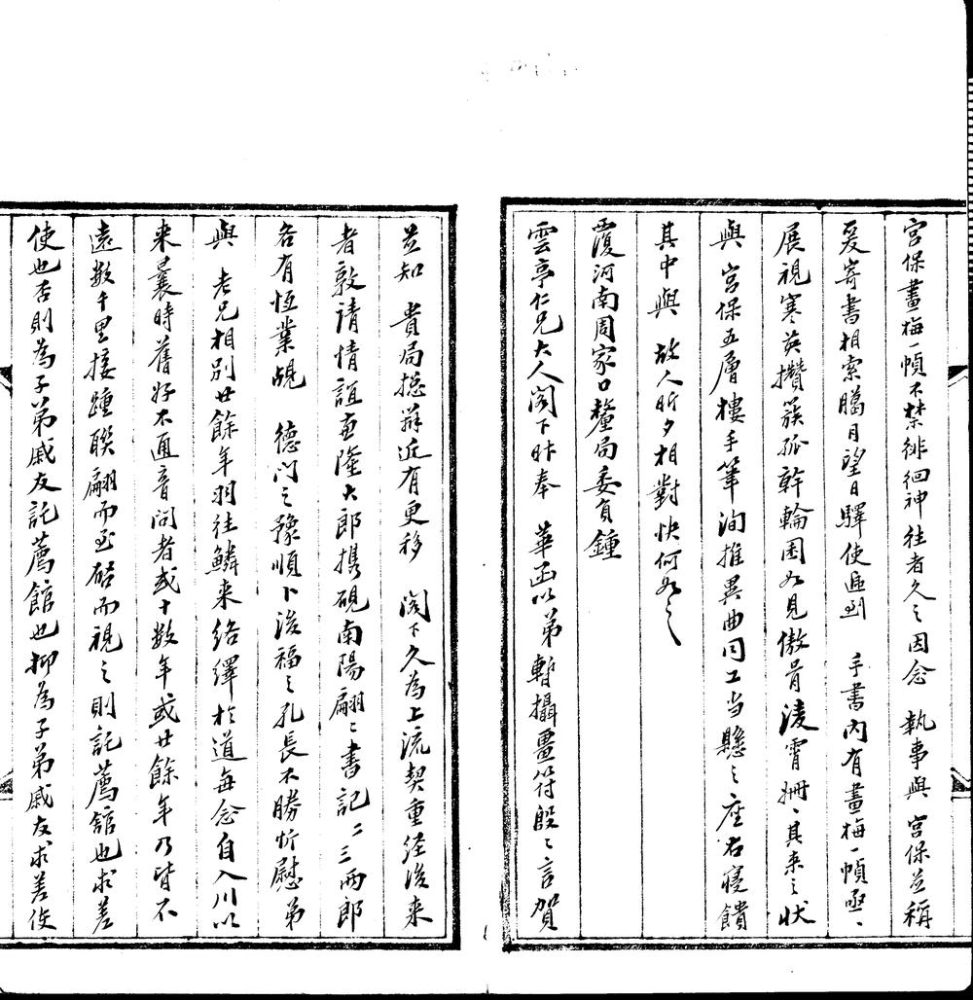 宮保畫梅一幀不禁徘徊神往者久之因念 執事與 宮保並稱
爰寄書相索臘月望日驛使遞到 手書內有畫梅一幀亟〻
展視寒英攢簇孤幹輪囷如見傲骨淩霄姍〻其来之狀
與 宮保五層樓手筆洵推異曲同工当懸之座右寢饋
其中與 故人昕夕相對快何如之
覆河南周家口釐局委員鍾
雲亭仁兄大人閣下昨奉 華函以弟暫攝畺符殷〻言賀
並知 貴局總辦近有更移 閣下久為上流契重繼後来
者敦請情誼亟隆大郎携硯南陽翩〻書記二三兩郎
各有恆業覘 德門之豫順卜後福之孔長不勝忻慰弟
與 老兄相別廿餘年羽往鱗来絡繹於道每念自入川以
来曩時舊好不通音問者或十數年或廿餘年乃皆不
遠數千里接踵聯翩而至啟而視之則託薦館也求差
使也否則為子弟戚友託薦館也抑為子弟戚友求差使